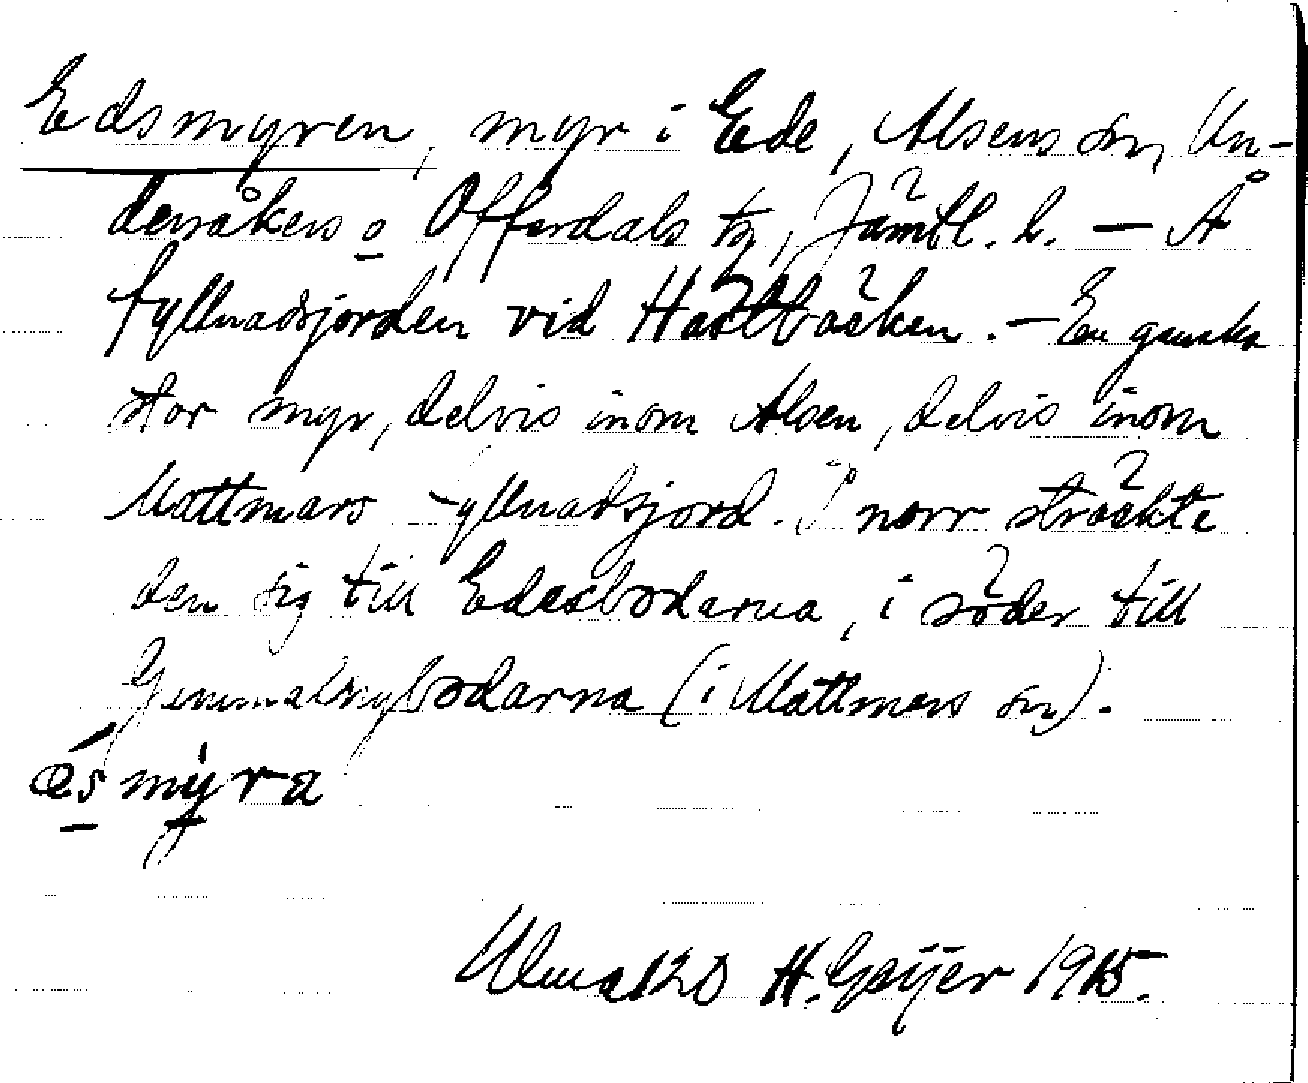 Edsmyren, myr i Ede, Alsens sn, Un-
dersåkers o Offerdals tg, Jämtl. l. — Å
fyllnadsjorden vid Hästbäcken. — En ganska
stor myr, delvis inom Alsen, delvis inom
Mattmars fyllnadsjord. I norr sträckte
den sig till Edesbodarna, i söder till
(i Mattmars sn).
és myra
H. Geijer 1915.